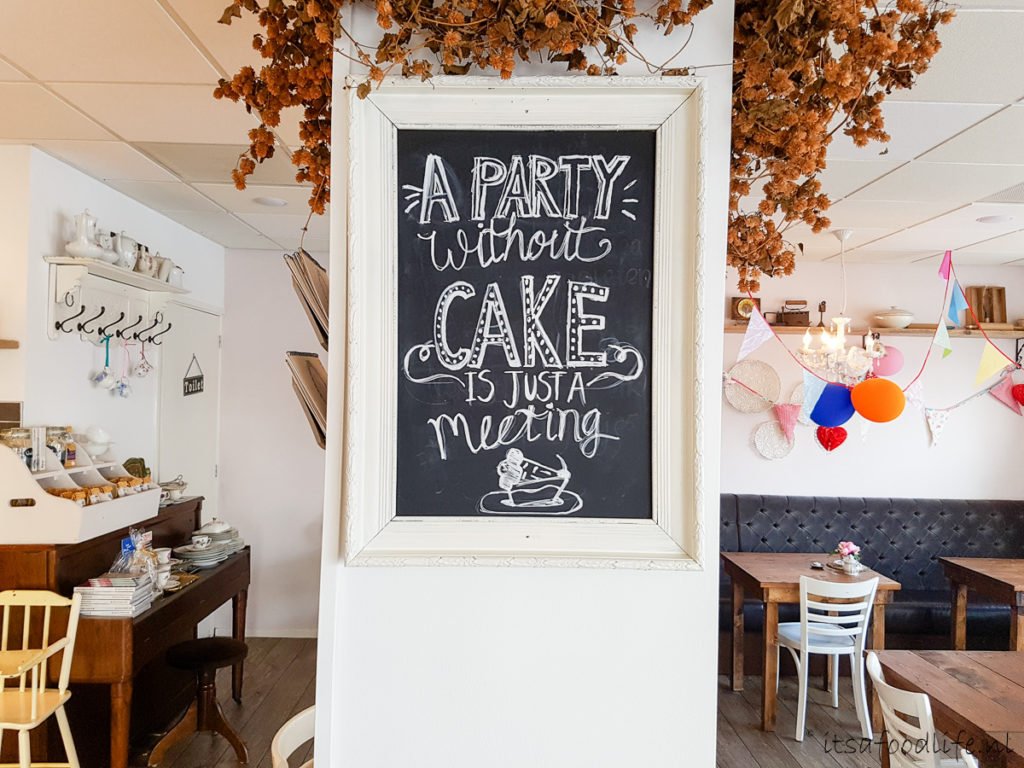 A PARTY
without
CAKE
IS JUST A
meeting
Toilet
itsafoodlife.nl